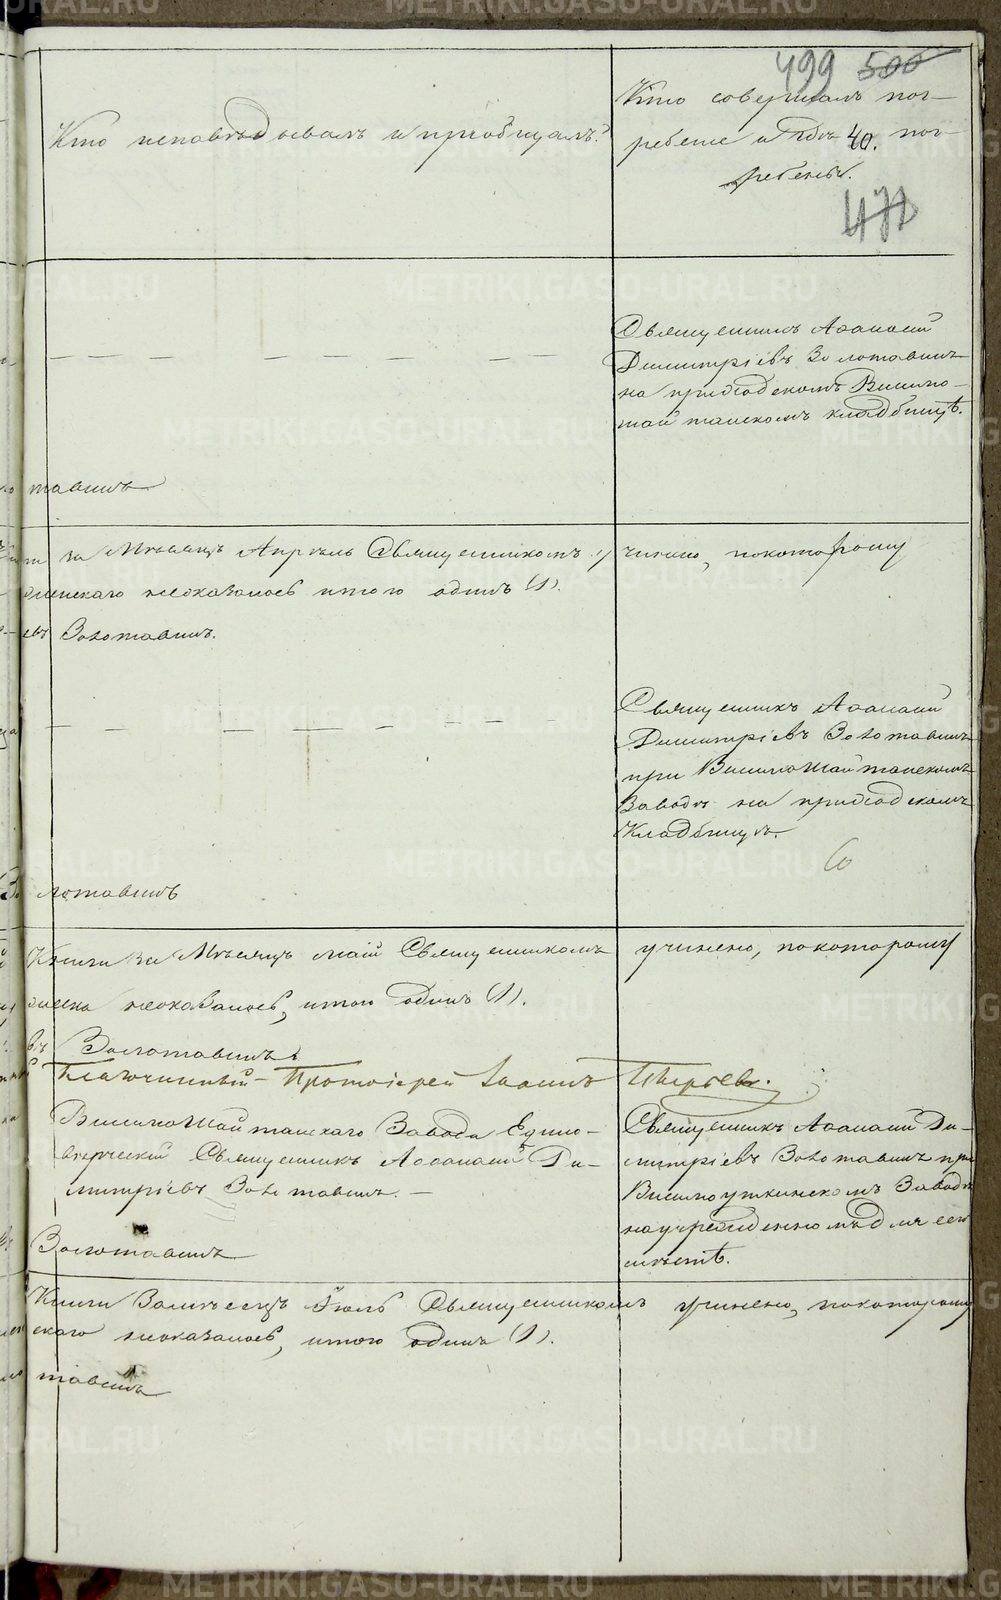 499 500
Кто исповѣдывалъ и пріобщалъ?
Кто совершалъ пог-
ребеніе и гдѣ 40. пог-
ребены.
Священникъ Аѳанасій
Димитріевъ Золотавинъ
на приходскомъ Висимо-
шайтанскомъ кладбищѣ.
тавинъ
за Мѣсяцъ Апрѣль Священникомъ учинено, покоторому
неоказалось итого одинъ (1).
евъ Золотавинъ.
Священникъ Аѳанасій
Димитріевъ Золотавинъ
при Висимошайтанскомъ
Заводѣ на приходскомъ
Кладбищѣ.
лотавинъ
Книги За Мѣсяцъ май Священникомъ учинено, покоторому
неоказалось, итого одинъ (1).
въ Золотавинъ.
Благочинный Протоіерей Іоаннъ
Висимошайтанскаго Завода Едино-
верческій Священникъ Аѳанасій Ди-
митріевъ Золотавинъ.
Священникъ Аѳанасій Ди-
митріевъ Золотавинъ при
Висимоуткинскомъ Заводѣ
научрежденномъ для сего
мѣстѣ.
Золотавинъ
Книги Замѣсяцъ Іюль Священникомъ учинено, покоторому
скаго неоказалось, итого одинъ (1).
тавинъ
METRIKI.GASO-URAL.RU